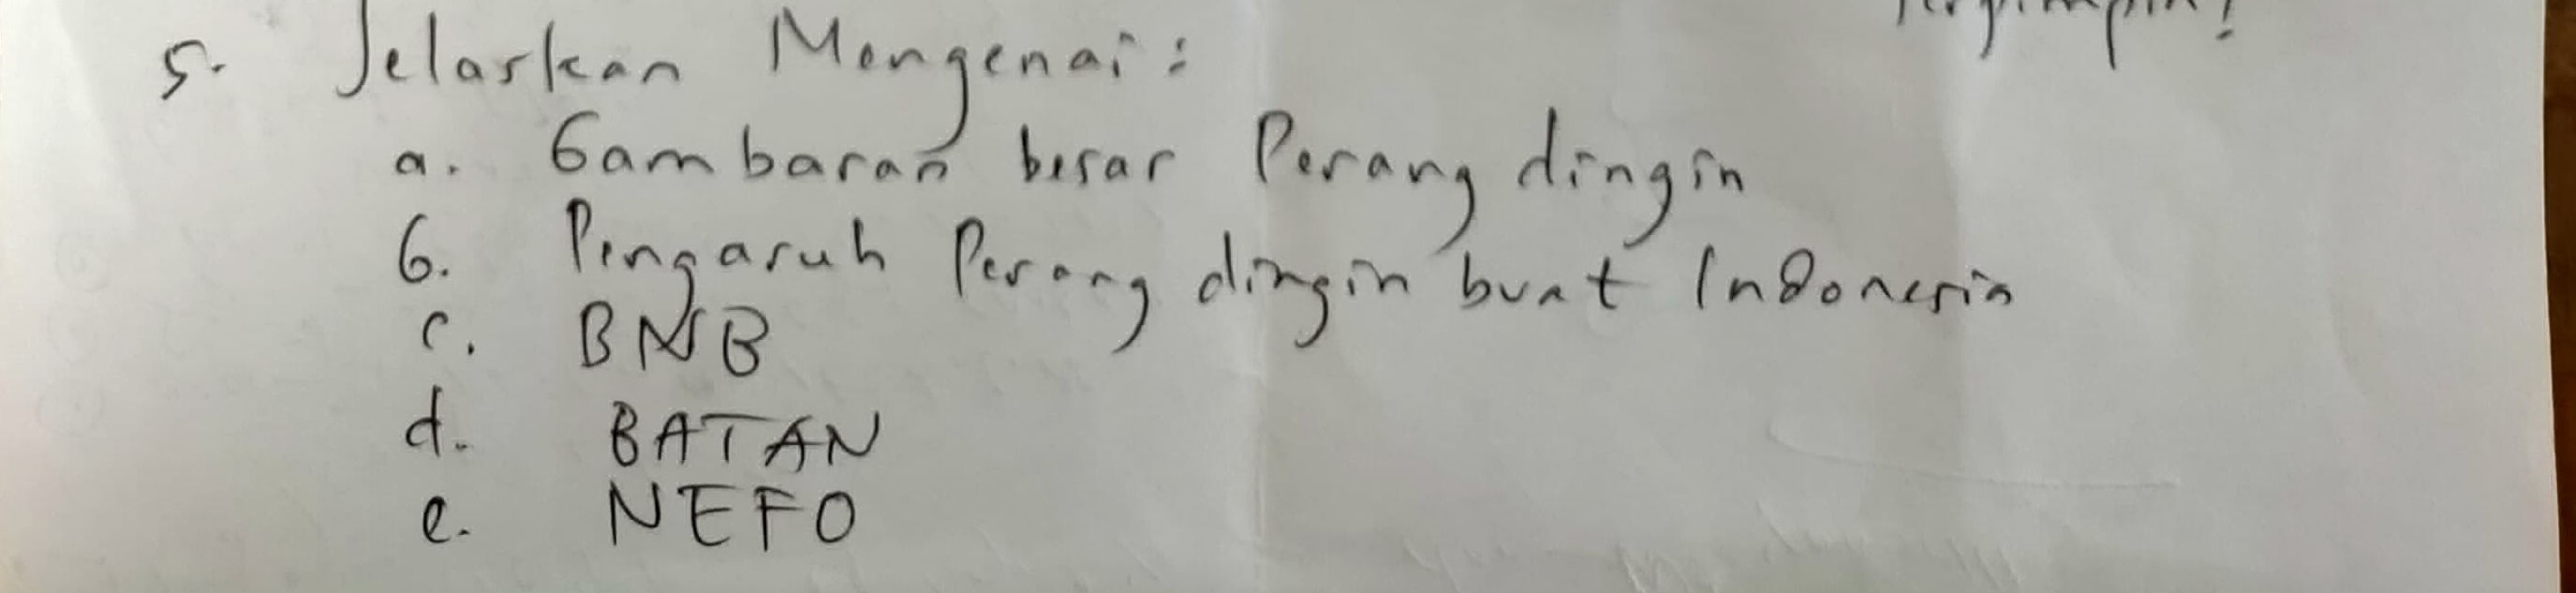 Terpimpin!
5. Jelaskan Mengenai:
a. Gambaran besar Perang dingin
b. Pengaruh Perang dingin buat Indonesia
c. BNB
d. BATAN
e. NEFO